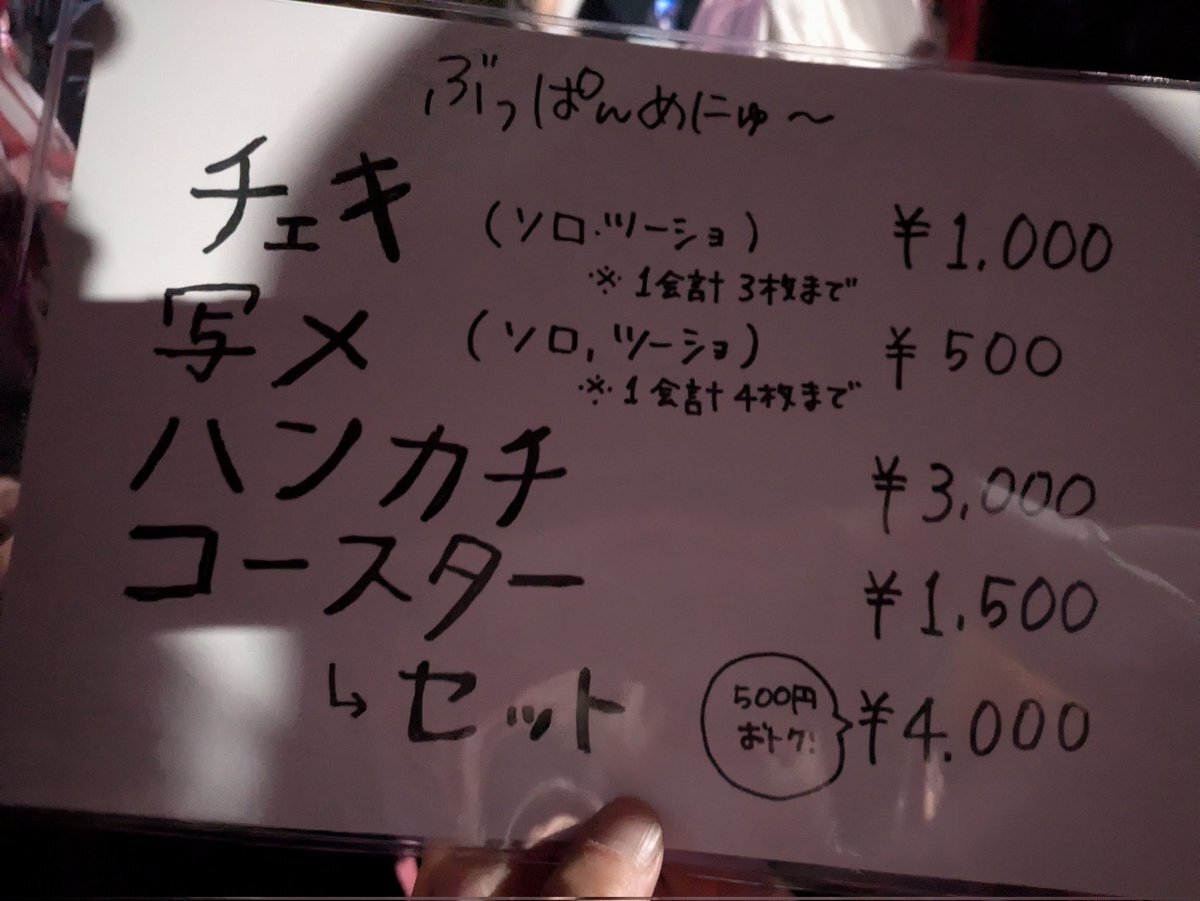 ぶっぱんめにゅ〜
チェキ (ソロ.ツーショ) ¥1.000
※1会計 3枚まで
写メ (ソロ,ツーショ) ¥500
※1会計 4枚まで
ハンカチ ¥3,000
コースター ¥1.500
↳セット 500円おトク! ¥4.000